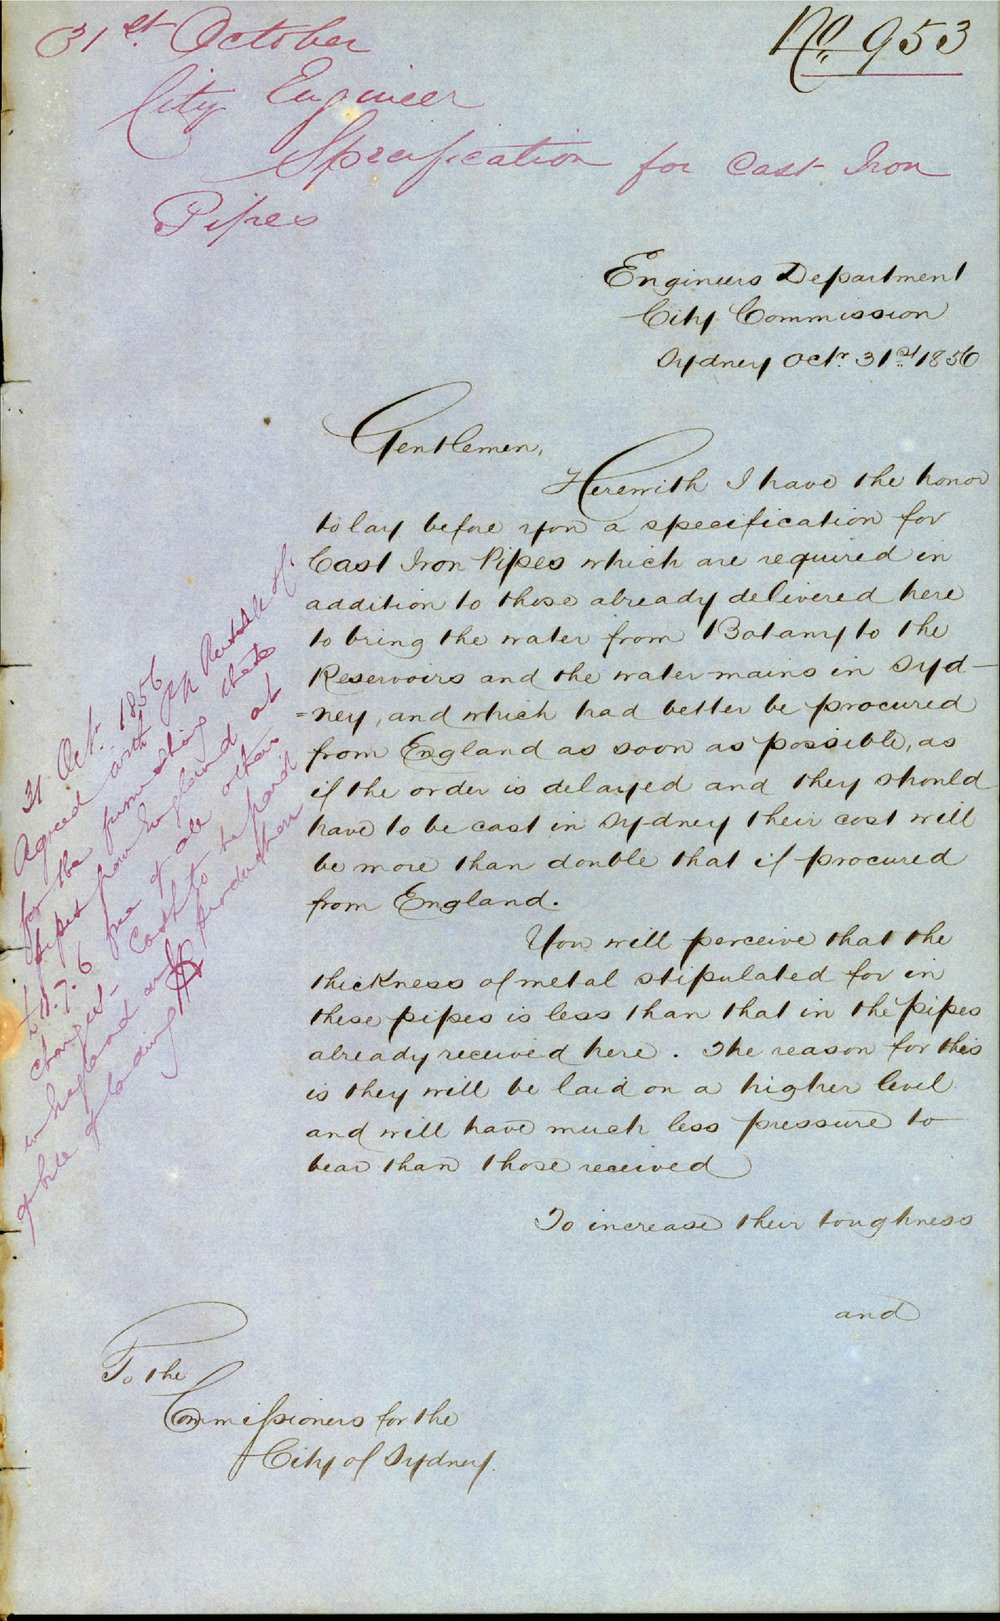 31st. October
No. 953
City Engineer
Specification for Cast Iron
Pipes
Engineers Department
City Commission
Sydney Octr. 31st. 1856
Gentlemen,
Herewith I have the honor
to lay before you a specification for
Cast Iron Pipes which are required in
addition to those already delivered here
to bring the water from Botany to the
Reservoirs and the water mains in Syd-
=ney, and which had better be procured
from England as soon as possible, as
if the order is delayed and they should
have to be cast in Sydney their cost will
be more than double that if procured
from England.
You will perceive that the
thickness of metal stipulated for in
these pipes is less than that in the pipes
already received here. The reason for this
is they will be laid on a higher level
and will have much less pressure to
bear than those received
To increase their toughness
and
To the
Commissioners for the
City of Sydney.
31 Octr. 1856
Agreed with
for the furnishing these
pipes from England at
7.6 free of all other
charges - Cash to be paid
in England on production
of bill of lading